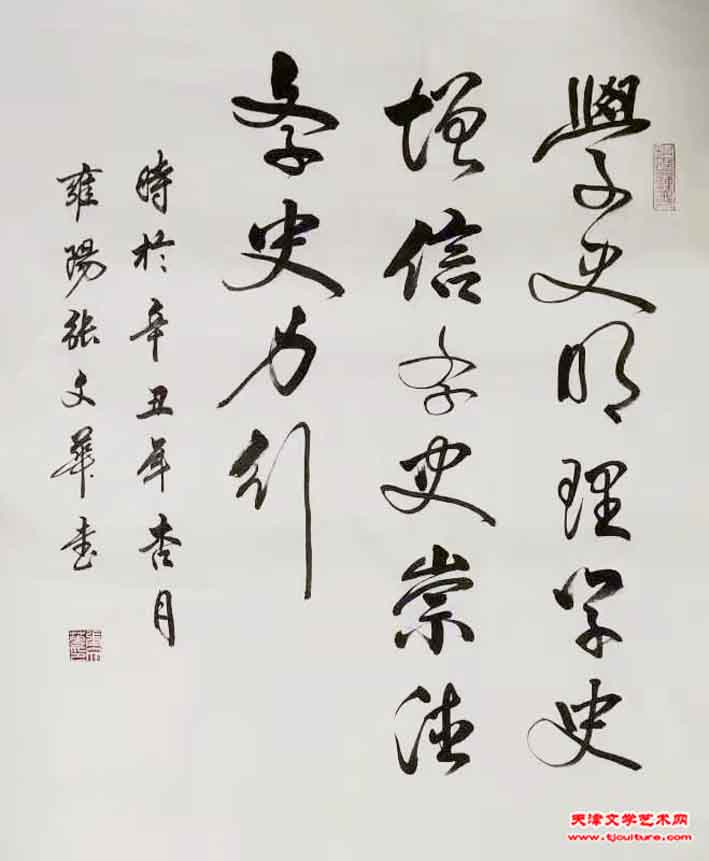 學史明理学史
增信学史崇德
学史力行
時於辛丑年杏月
雍陽張文華書
天津文学艺术网
www.tjculture.com